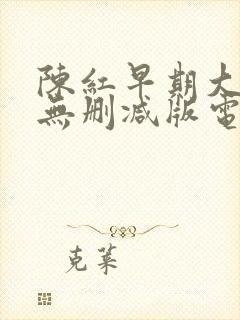 陳紅早期大
無刪減版電
克萊